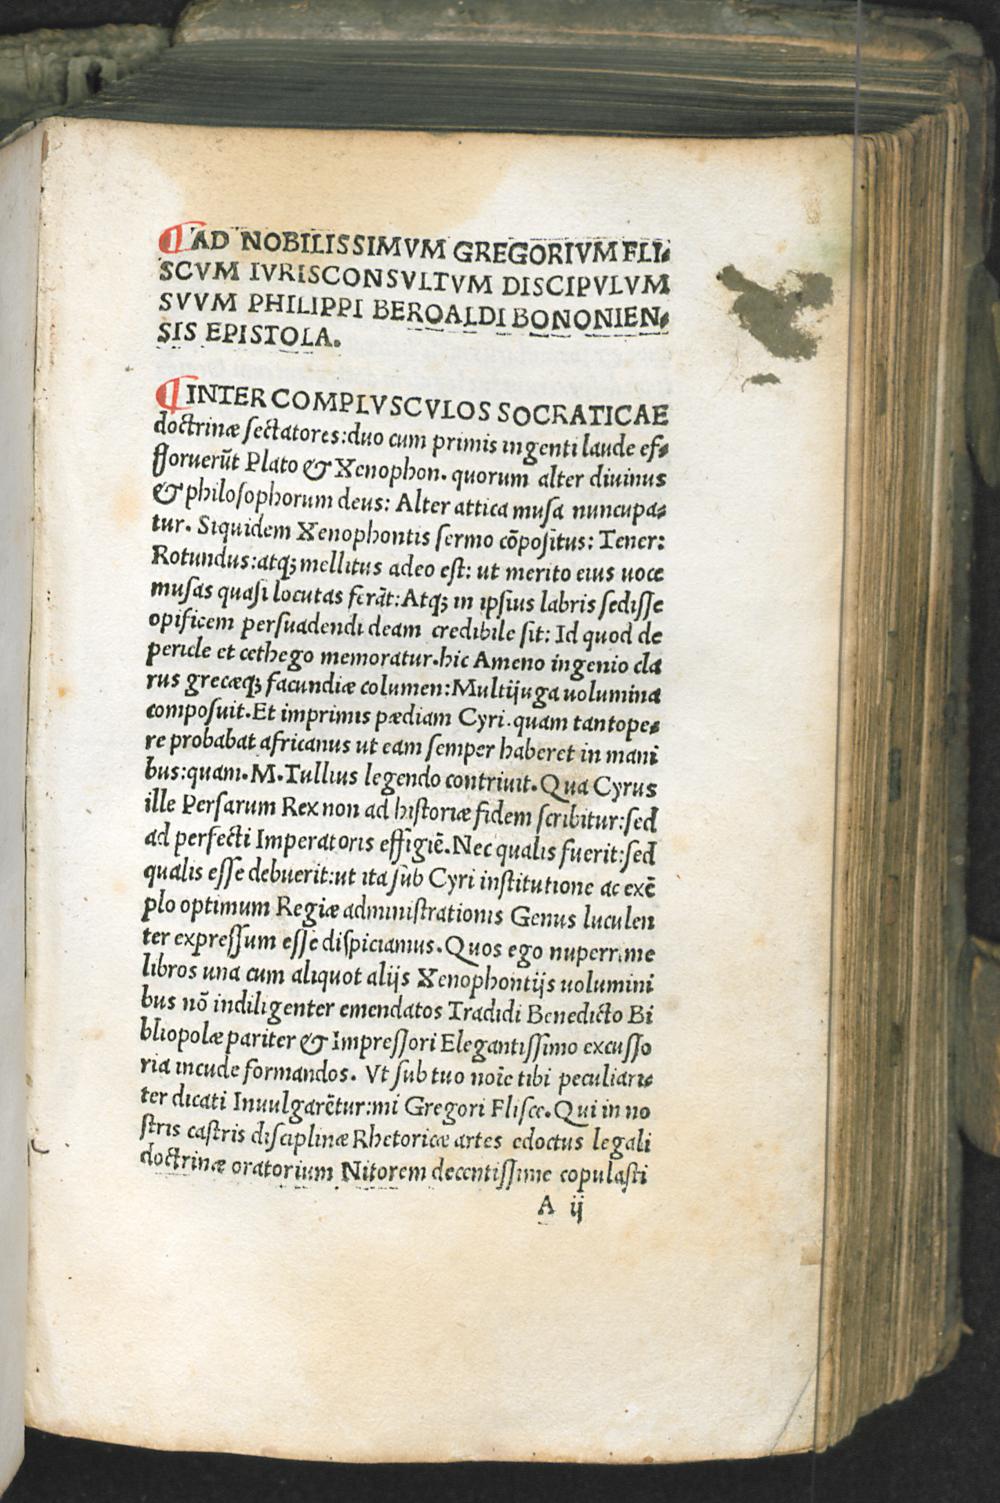 ¶AD NOBILISSIMVM GREGORIVM FLI-
SCVM IVRISCONSVLTVM DISCIPVLVM
SVVM PHILIPPI BEROALDI BONONIEN-
SIS EPISTOLA.
¶INTER COMPLVSCVLOS SOCRATICAE
doctrinæ ſectatores:duo cum primis ingenti laude ef-
floruerūt Plato & Xenophon. quorum alter diuinus
& philoſophorum deus: Alter attica muſa nuncupa-
tur. Siquidem Xenophontis ſermo cōpoſitus: Tener:
Rotundus:atqꝫ mellitus adeo eſt: ut merito eius uoce
muſas quaſi locutas ferāt:Atqꝫ in ipſius labris ſediſſe
opificem perſuadendi deam credibile ſit: Id quod de
pericle et cethego memoratur.hic Ameno ingenio cla
rus grecæqꝫ facundiæ columen:Multijuga uolumina
compoſuit.Et imprimis pædiam Cyri.quam tantope-
re probabat africanus ut eam ſemper haberet in mani
bus:quam.M.Tullius legendo contriuit.Qua Cyrus
ille Perſarum Rex non ad hiſtoriæ fidem ſcribitur:ſed
ad perfecti Imperatoris effigiē.Nec qualis fuerit:ſed
qualis eſſe debuerit:ut ita ſub Cyri inſtitutione ac exē
plo optimum Regiæ adminiſtrationis Genus luculen
ter expreſſum eſſe diſpiciamus.Quos ego nuperrime
libros una cum aliquot alijs Xenophontijs uolumini
bus nō indiligenter emendatos Tradidi Benedicto Bi
bliopolæ pariter & Impreſſori Elegantiſſimo excuſſo
ria incude formandos. Vt ſub tuo noīe tibi peculiari-
ter dicati Inuulgarētur:mi Gregori Fliſce.Qui in no
ſtris caſtris diſciplinæ Rhetoricæ artes edoctus legali
doctrinæ oratorium Nitorem decentiſſime copulaſti
A ij